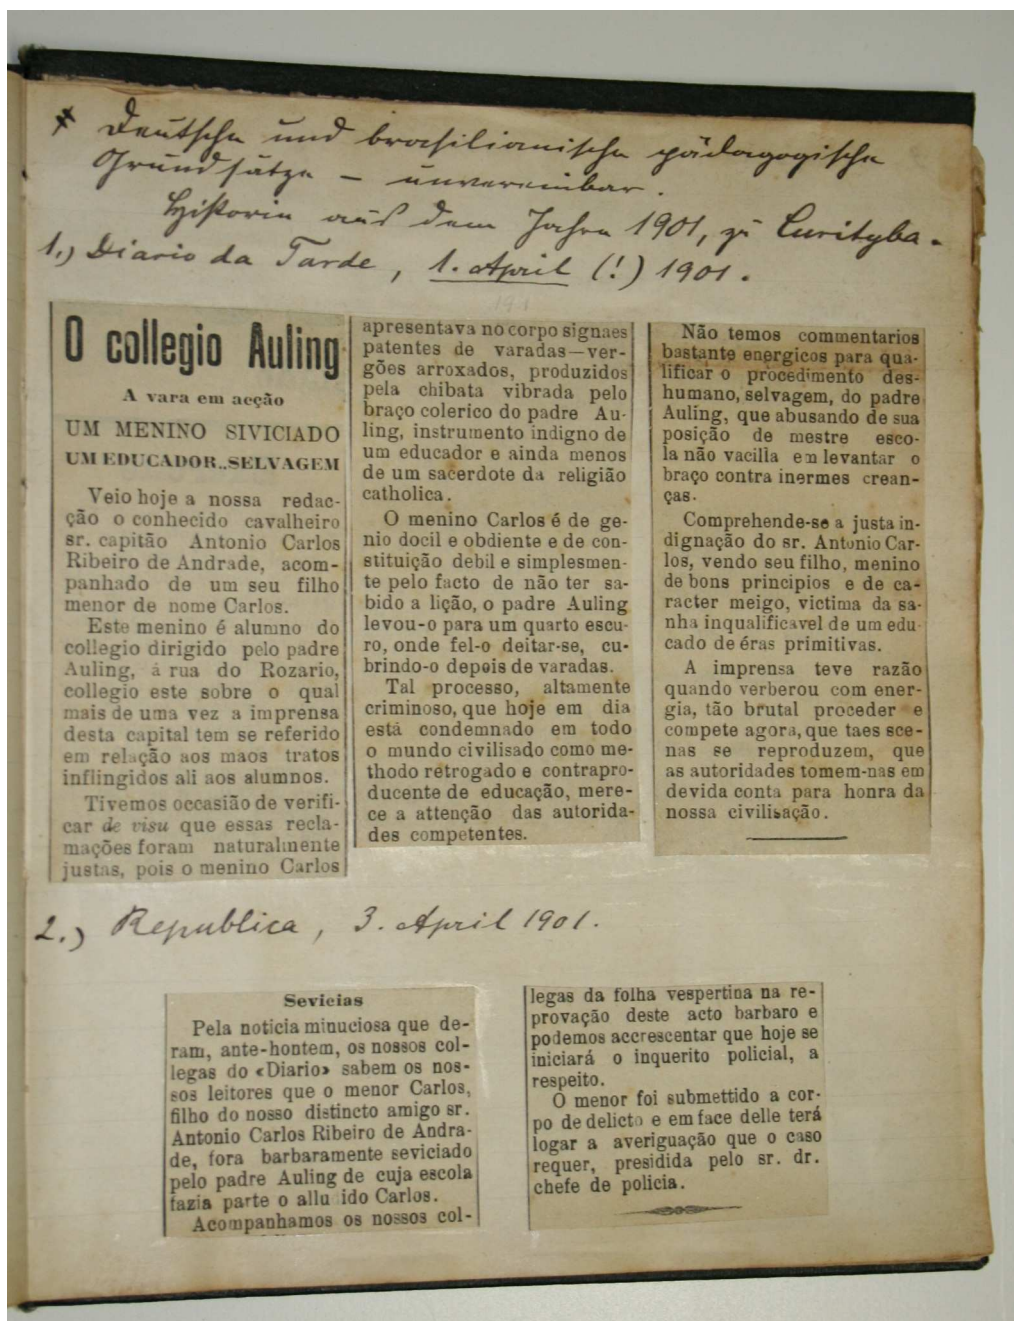 * Deutsche und brasilianische pädagogische
Grundsätze – unvereinbar.
Historie aus dem Jahre 1901, zu Curityba.
1.) Diario da Tarde, 1. April (!) 1901.
191
O collegio Auling
A vara em acção
UM MENINO SIVICIADO
UM EDUCADOR..SELVAGEM
Veio hoje a nossa redac-
ção o conhecido cavalheiro
sr. capitão Antonio Carlos
Ribeiro de Andrade, acom-
panhado de um seu filho
menor de nome Carlos.
Este menino é alumno do
collegio dirigido pelo padre
Auling, á rua do Rozario,
collegio este sobre o qual
mais de uma vez a imprensa
desta capital tem se referido
em relação aos maos tratos
inflingidos ali aos alumnos.
Tivemos occasião de verifi-
car de visu que essas recla-
mações foram naturalmente
justas, pois o menino Carlos
apresentava no corpo signaes
patentes de varadas—ver-
gões arroxados, produzidos
pela chibata vibrada pelo
braço colerico do padre Au-
ling, instrumento indigno de
um educador e ainda menos
de um sacerdote da religião
catholica.
O menino Carlos é de ge-
nio docil e obdiente e de con-
stituição debil e simplesmen-
te pelo facto de não ter sa-
bido a lição, o padre Auling
levou-o para um quarto escu-
ro, onde fel-o deitar-se, cu-
brindo-o depois de varadas.
Tal processo, altamente
criminoso, que hoje em dia
está condemnado em todo
o mundo civilisado como me-
thodo retrogado e contrapro-
ducente de educação, mere-
ce a attenção das autorida-
des competentes.
Não temos commentarios
bastante energicos para qua-
lificar o procedimento des-
humano, selvagem, do padre
Auling, que abusando de sua
posição de mestre esco-
la não vacilla em levantar o
braço contra inermes crean-
ças.
Comprehende-se a justa in-
dignação do sr. Antonio Car-
los, vendo seu filho, menino
de bons principios e de ca-
racter meigo, victima da sa-
nha inqualificavel de um edu-
cado de éras primitivas.
A imprensa teve razão
quando verberou com ener-
gia, tão brutal proceder e
compete agora, que taes sce-
nas se reproduzem, que
as autoridades tomem-nas em
devida conta para honra da
nossa civilisação.
2.) Republica, 3. April 1901.
Sevicias
Pela noticia minuciosa que de-
ram, ante-hontem, os nossos col-
legas do «Diario» sabem os nos-
sos leitores que o menor Carlos,
filho do nosso distincto amigo sr.
Antonio Carlos Ribeiro de Andra-
de, fora barbaramente seviciado
pelo padre Auling de cuja escola
fazia parte o allu ido Carlos.
Acompanhamos os nossos col-
legas da folha vespertina na re-
provação deste acto barbaro e
podemos accrescentar que hoje se
iniciará o inquerito policial, a
respeito.
O menor foi submettido a cor-
po de delicto e em face delle terá
logar a averiguação que o caso
requer, presidida pelo sr. dr.
chefe de policia.